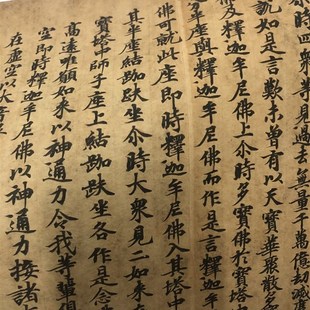 尒時四衆等見過去無量千萬億劫滅度
說如是言歎未曾有以天寶華聚散多
佛及釋迦牟尼佛上尒時多寶佛於寶塔中
半座與釋迦牟尼佛而作是言釋迦牟
佛可就此座即時釋迦牟尼佛入其塔中
其半座結跏趺坐尒時大衆見二如來
寶塔中師子座上結跏趺坐各作是念
高遠唯願如來以神通力令我等輩俱
空即時釋迦牟尼佛以神通力接諸
在虛空以大音